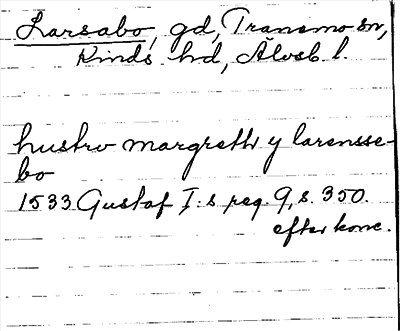 Larsabo, gd, Tranemo sn,
Kinds hd, Älvsb. l.
hustrv margrethr y larensse-
bo
1533 Gustaf I:s reg. 9, s. 350.
efter konc.